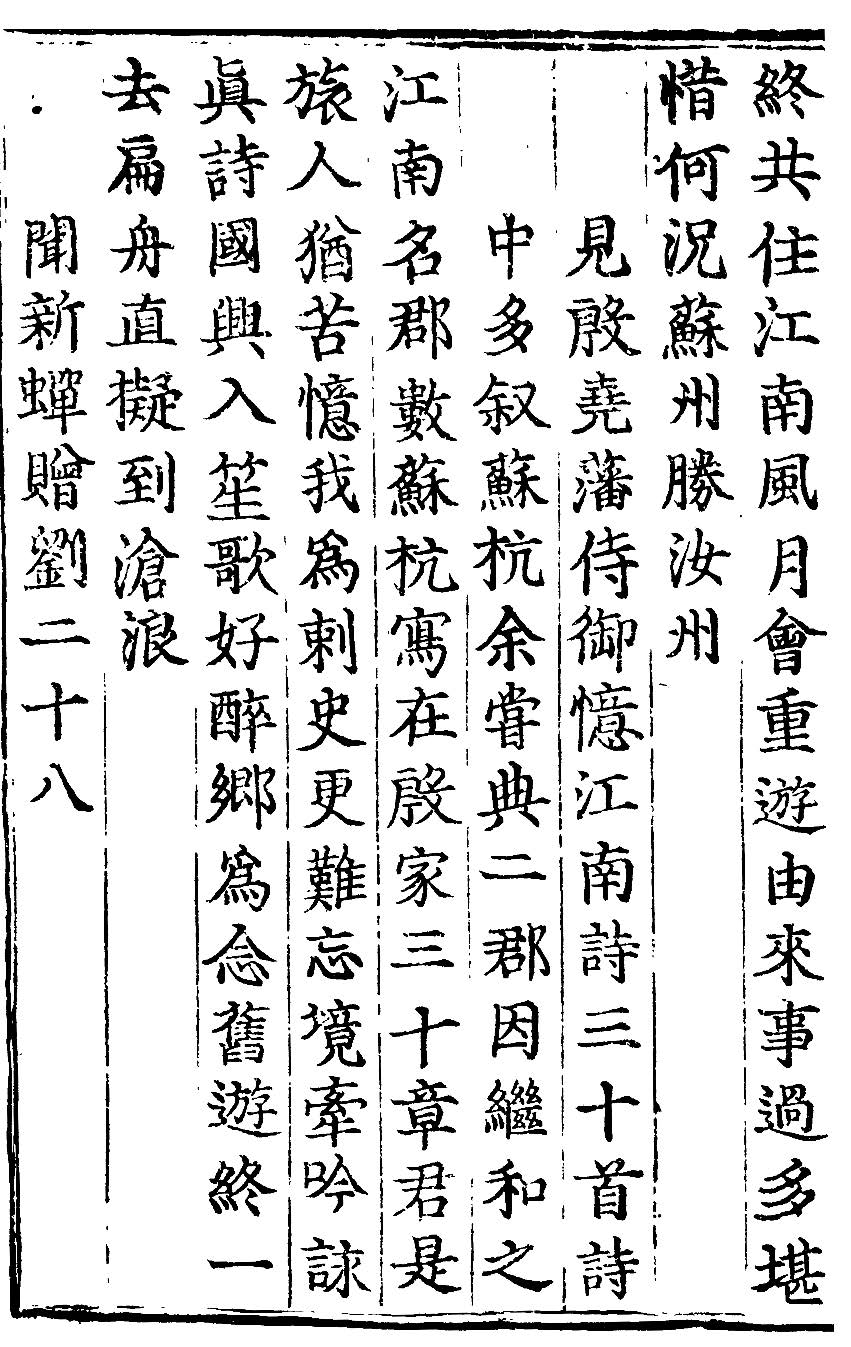 終共住江南風月會重遊由來事過多堪
惜何況蘇州勝汝州
見殷堯藩侍御憶江南詩三十首詩
中多叙蘇杭余嘗典二郡因繼和之
江南名郡數蘇杭寫在殷家三十章君是
旅人猶苦憶我爲刺史更難忘境牽吟詠
眞詩國興入笙歌好醉鄉爲念舊遊終一
去扁舟直擬到滄浪
聞新蟬贈劉二十八